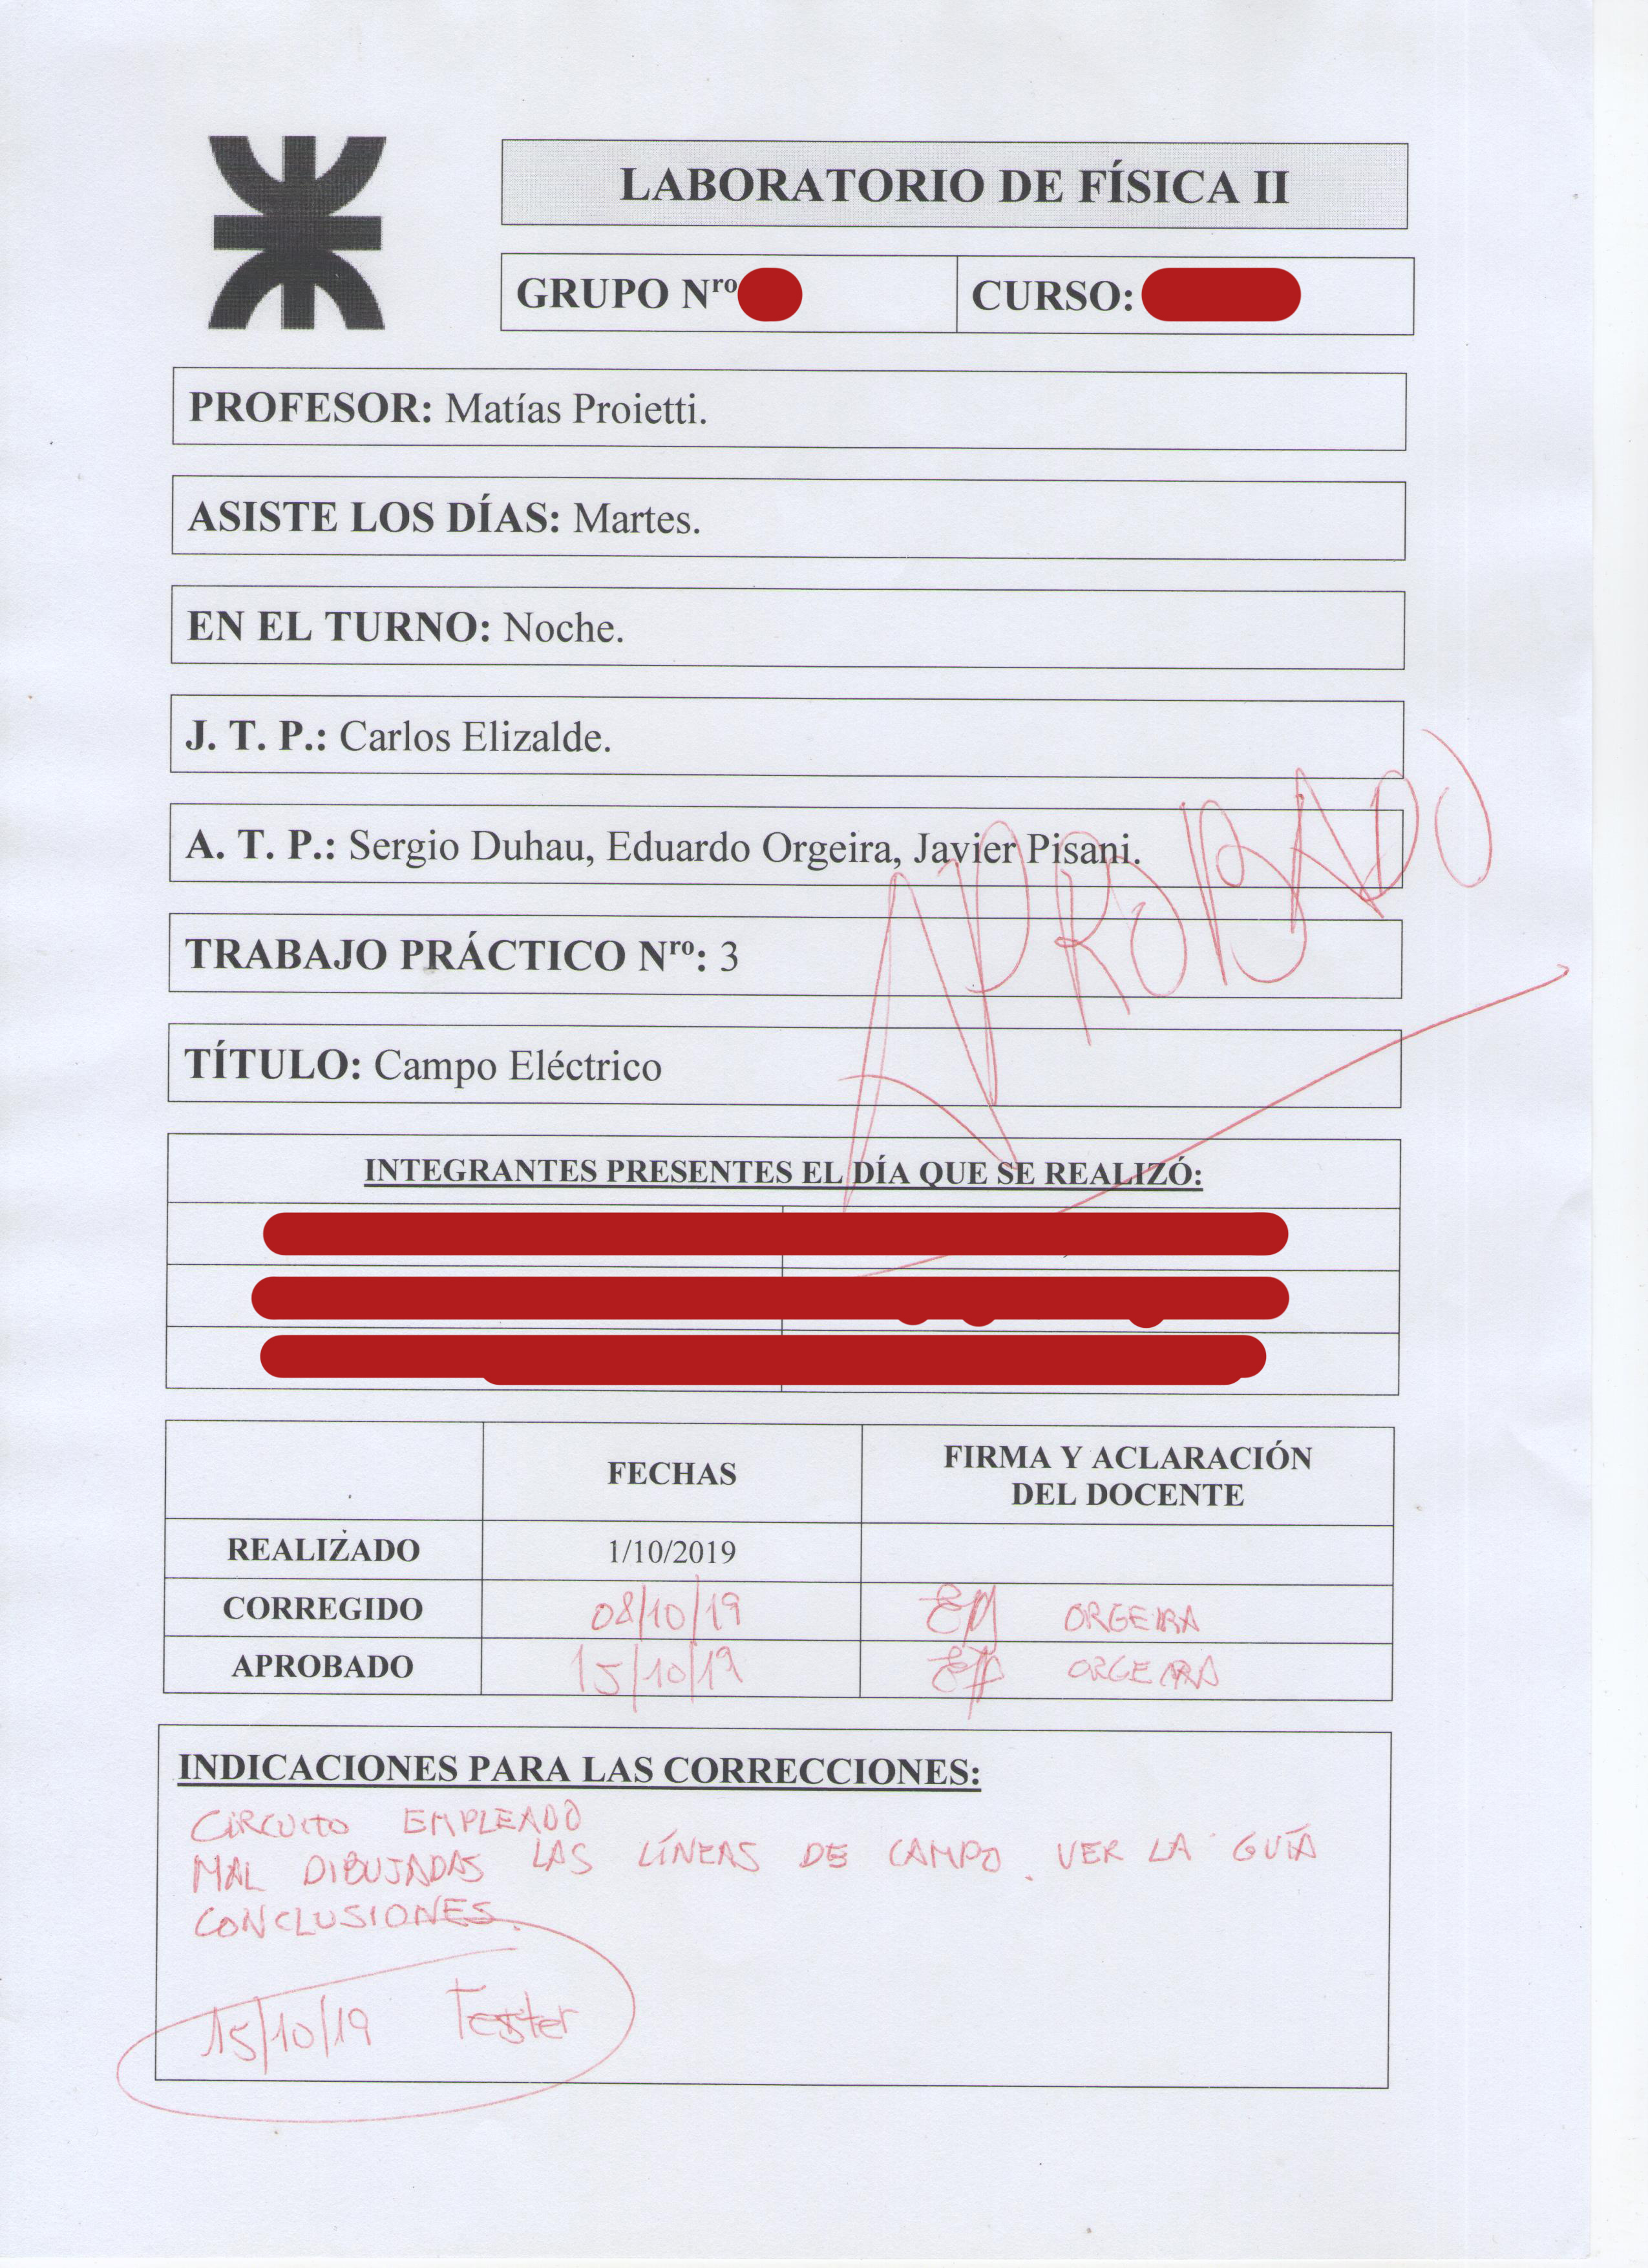 LABORATORIO DE FÍSICA II
GRUPO Nro
CURSO:
PROFESOR: Matías Proietti.
ASISTE LOS DÍAS: Martes.
EN EL TURNO: Noche.
J. T. P.: Carlos Elizalde.
A. T. P.: Sergio Duhau, Eduardo Orgeira, Javier Pisani.
APROBADO
TRABAJO PRÁCTICO Nro: 3
TÍTULO: Campo Eléctrico
INTEGRANTES PRESENTES EL DÍA QUE SE REALIZÓ:
FECHAS
FIRMA Y ACLARACIÓN
DEL DOCENTE
REALIZADO 1/10/2019
CORREGIDO 08/10/19 ORGEIRA
APROBADO 15/10/19 ORGEIRA
INDICACIONES PARA LAS CORRECCIONES:
CIRCUITO EMPLEADO
MAL DIBUJADAS LAS LÍNEAS DE CAMPO. VER LA GUÍA
CONCLUSIONES.
15/10/19 Tester